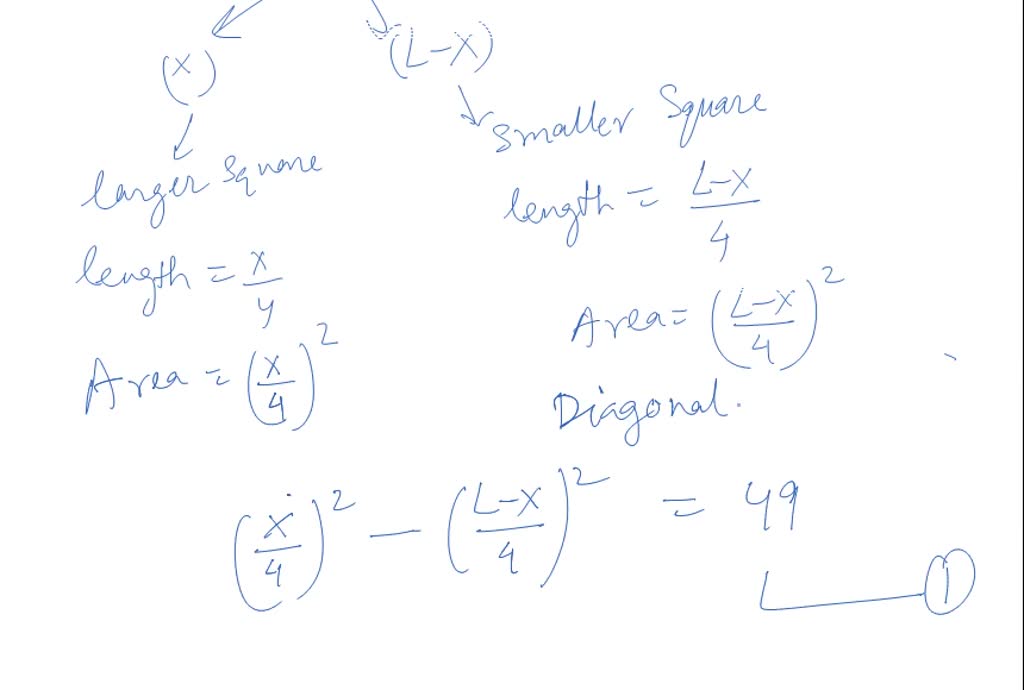 (x)
(L-x)
larger square
length = x/4
Area = (x/4)^2
smaller Square
length = L-x/4
Area = (L-x/4)^2
Diagonal.
(x/4)^2 - (L-x/4)^2 = 49
①